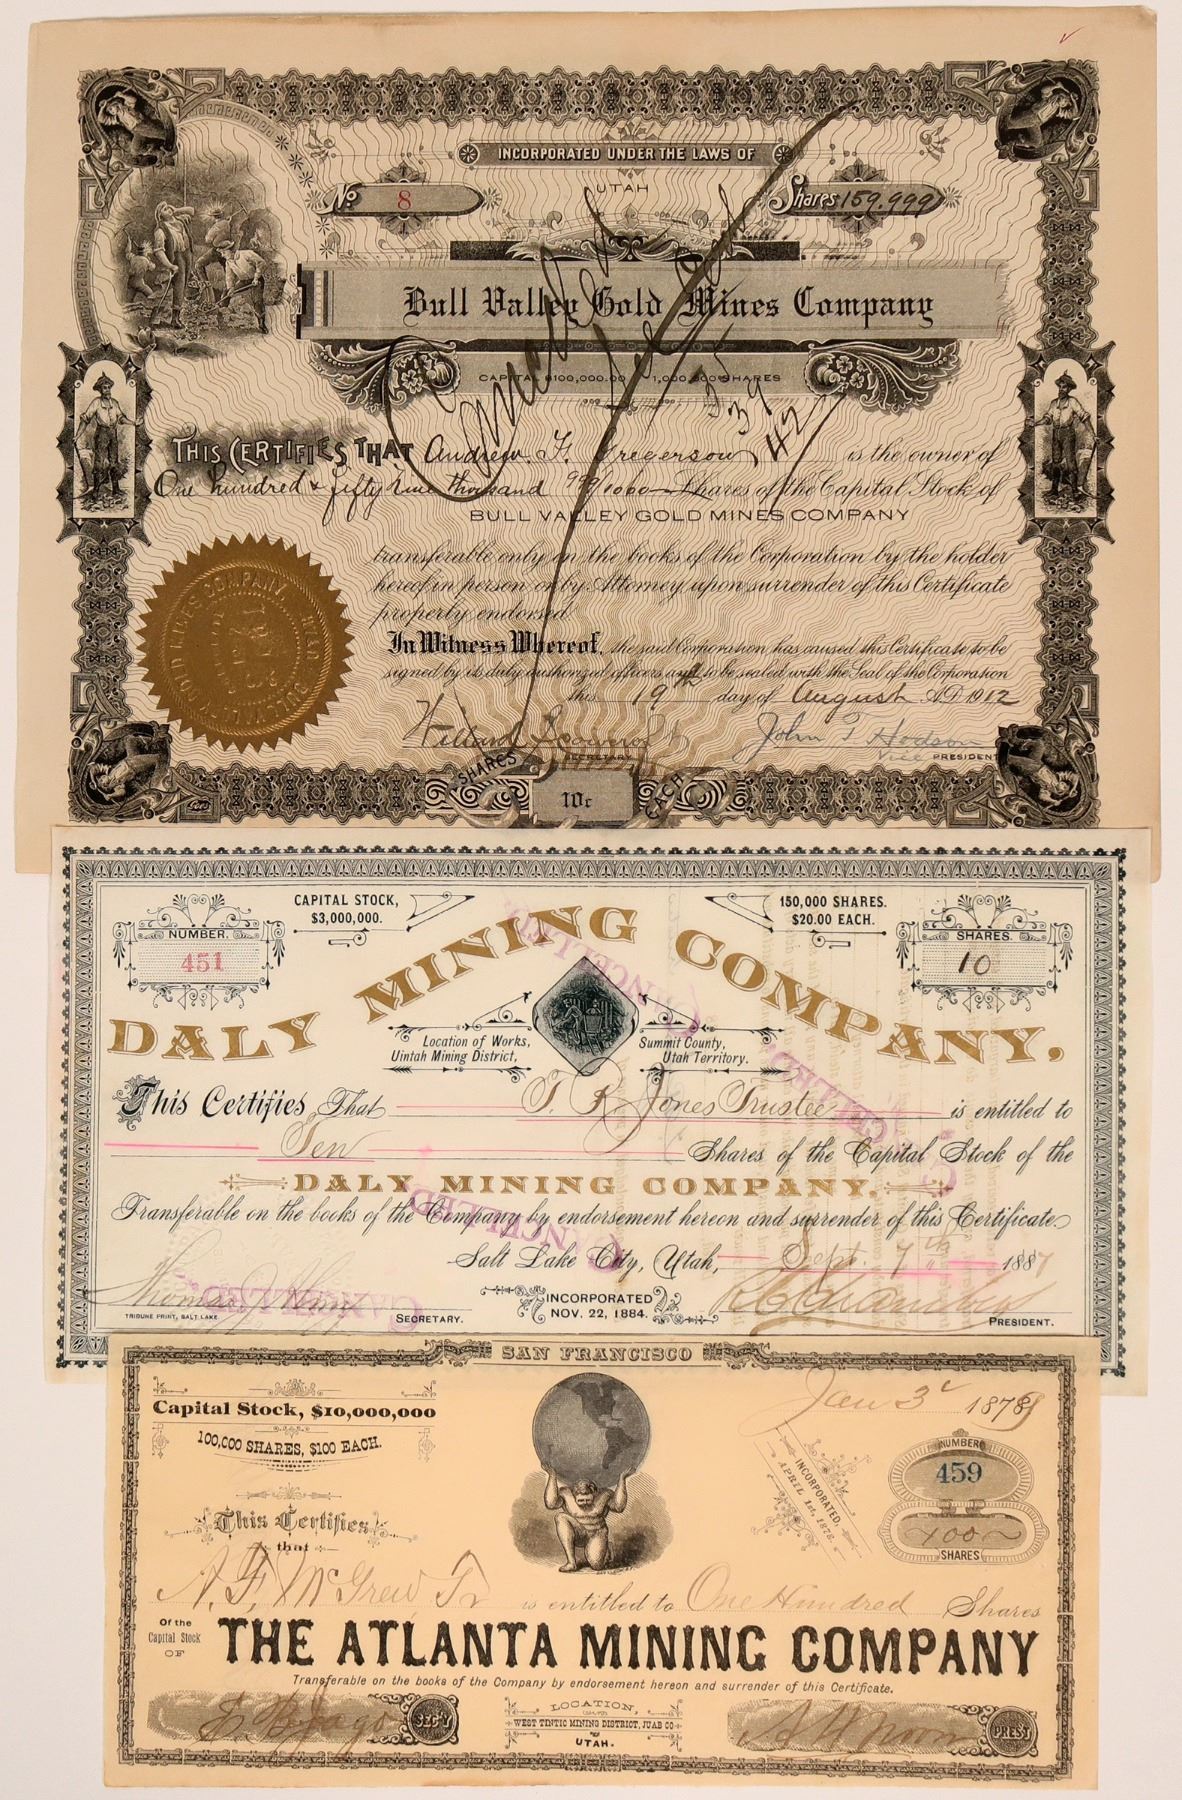 INCORPORATED UNDER THE LAWS OF
UTAH
No 8
Shares 159,999
Bull Valley Gold Mines Company
CAPITAL $100,000.00 1,000,000 SHARES
Cancelled
25
39
42
THIS CERTIFIES THAT Andrew F. Gregerson is the owner of
One hundred & fifty nine thousand 999/1000 Shares of the Capital Stock of
BULL VALLEY GOLD MINES COMPANY
transferable only on the books of the Corporation by the holder
hereof in person or by Attorney upon surrender of this Certificate
properly endorsed
In Witness Whereof, the said Corporation has caused this Certificate to be
signed by its duly authorized officers and to be sealed with the Seal of the Corporation
this 19th day of August A.D. 1912
John T Hodson
SECRETARY
Vice PRESIDENT
BULL VALLEY GOLD MINES COMPANY UTAH
SHARES 10c EACH
CAPITAL STOCK,
$3,000,000.
150,000 SHARES.
$20.00 EACH.
NUMBER.
451
SHARES.
10
DALY MINING COMPANY.
Location of Works,
Uintah Mining District,
Summit County,
Utah Territory.
This Certifies That T. R. Jones Trustee is entitled to
Ten Shares of the Capital Stock of the
DALY MINING COMPANY.
Transferable on the books of the Company by endorsement hereon and surrender of this Certificate
Salt Lake City, Utah, Sept. 7th 1887
CANCELLED
CANCELLED
CANCELLED
CANCELLED
TRIBUNE PRINT, SALT LAKE
SECRETARY.
INCORPORATED
NOV. 22, 1884.
PRESIDENT.
SAN FRANCISCO
Capital Stock, $10,000,000
100,000 SHARES, $100 EACH.
Jan 3 1878
INCORPORATED.
APRIL 1st, 1876.
NUMBER
459
100
SHARES
This Certifies
that
A. F. McGrew, Tr is entitled to One Hundred Shares
Of the
Capital Stock
OF
THE ATLANTA MINING COMPANY
Transferable on the books of the Company by endorsement hereon and surrender of this Certificate.
E B Jago SEC'Y
LOCATION,
WEST TINTIC MINING DISTRICT, JUAB CO
UTAH.
PREST